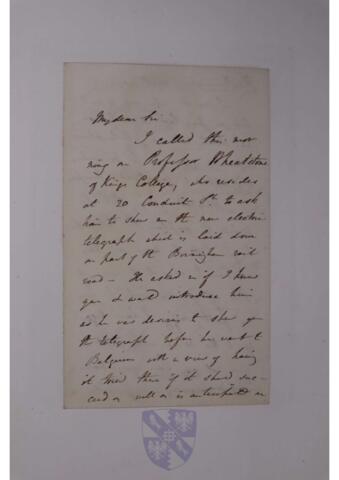 My dear Sir
I called this mor
ning on Professor Wheatstone
of Kings College, who resides
at 20 Conduit St. to ask
him to shew us the new electric
telegraph which is laid down
on part of the Birmingham rail
road — He asked me if I knew
you & would introduce him
as he was desirous to shew you
the telegraph before he went to
Belgium with a view of having
it tried there if it should suc
ceed as well as is anticipated on